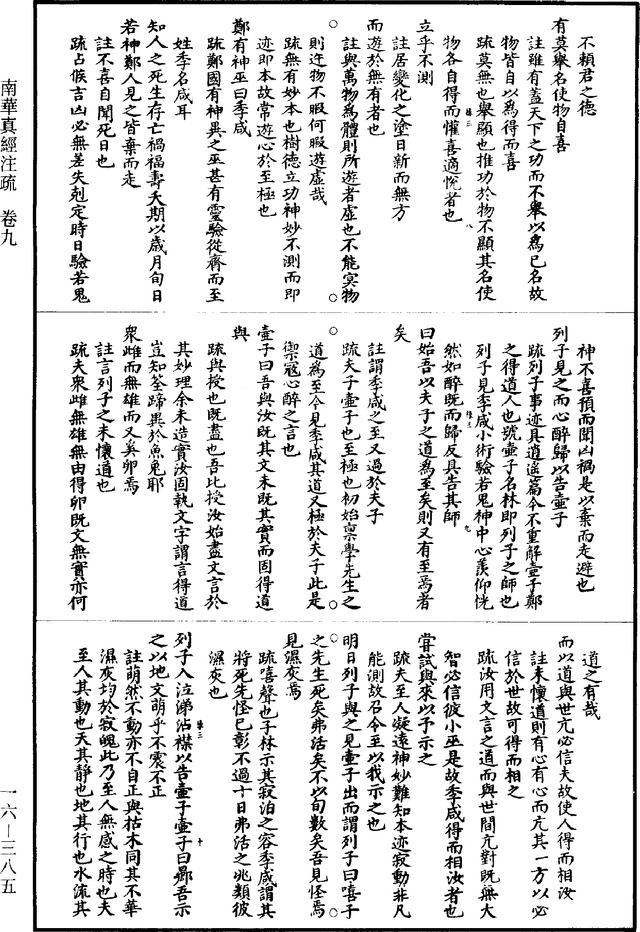 南華真經注疏　卷九
一六—三八五
不賴君之德
有莫舉名使物自喜
註雖有蓋天下之功而不舉以爲已名故
物皆自以爲得而喜
疏莫無也舉顯也推功於物不顯其名使
物各自得而懽喜適悅者也
立乎不測
註居變化之塗日新而無方
而遊於無有者也
註與萬物爲體則所遊者虛也不能冥物
則迕物不暇何暇遊虛哉
疏無有妙本也樹德立功神妙不測而即
迹即本故常遊心於至極也
鄭有神巫曰季咸
疏鄭國有神異之巫甚有靈驗從齊而至
姓季名咸耳
知人之死生存亡禍福壽夭期以歲月旬日
若神鄭人見之皆棄而走
註不喜自聞死日也
疏占候吉凶必無差失剋定時日驗若鬼
神不喜預而聞凶禍是以棄而走避也
列子見之而心醉歸以告壷子
疏列子事迹具逍遙篇今不重解壷子鄭
之得道人也號壷子名林即列子之師也
列子見季咸小術驗若鬼神中心羨仰恍
然如醉既而歸反具告其師
曰始吾以夫子之道爲至矣則又有至焉者
矣
註謂季咸之至又過於夫子
疏夫子壷子也至極也初始禀學先生之
道爲至今見季咸其道又極於夫子此是
禦寇心醉之言也
壷子曰吾與汝既其文未既其實而固得道
與
疏與授也既盡也吾比授汝始盡文言於
其妙理余未造實汝固執文字謂言得道
豈知筌蹄異於魚兔耶
衆雌而無雄而又奚卵焉
註言列子之未懷道也
疏夫衆雌無雄無由得卵既文無實亦何
道之有哉
而以道與世亢必信夫故使人得而相汝
註未懷道則有心有心而亢其一方以必
信於世故可得而相之
疏汝用文言之道而與世間亢對既無大
智必信彼小巫是故季咸得而相汝者也
嘗試與來以予示之
疏夫至人凝遠神妙難知本迹寂動非凡
能測故召令至以我示之也
明日列子與之見壷子出而謂列子曰嘻子
之先生死矣弗活矣不以旬數矣吾見怪焉
見濕灰焉
疏嘻聲也子林示其寂泊之容季咸謂其
將死先怪已彰不過十日弗活之兆類彼
濕灰也
列子入泣涕沾襟以告壷子壷子曰鄉吾示
之以地文萌乎不震不正
註萌然不動亦不自正與枯木同其不華
濕灰均於寂魄此乃至人無感之時也夫
至人其動也天其靜也地其行也水流其